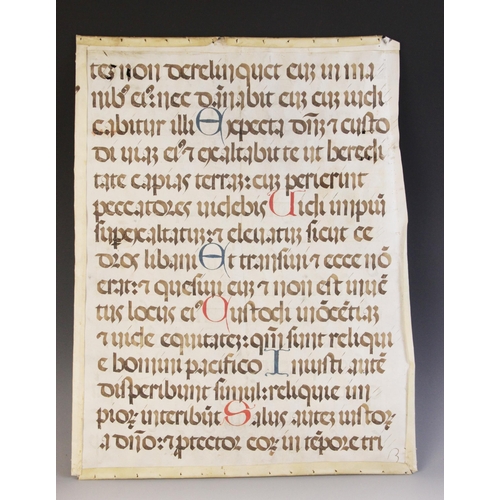 tes non derelinquet euꝫ in ma
nibꝰ eiꝰ: nec dānabit euꝫ cuꝫ iudi
cabitur illi Expecta dn̄ꝫ ⁊ custo
di uiaꝫ eiꝰ ⁊ exaltabit te ut heredi
tate capias terraꝫ: cuꝫ perierint
peccatores uidebis Uidi impiū
superexaltatuꝫ ⁊ eleuatuꝫ sicut ce
dros libani Et transiui ⁊ ecce nō
erat: ⁊ quesiui euꝫ ⁊ non est inuē
tus locus eiꝰ Custodi inōcētiaꝫ
⁊ uide equitateꝫ: qm̄ sunt reliqui
e homini pacifico Iniusti autē
disperibunt simul: reliquie im
pioꝝ interibūt Salus auteꝫ iustoꝝ
a dn̄o: ⁊ ꝓtector eoꝝ in tēpore tri